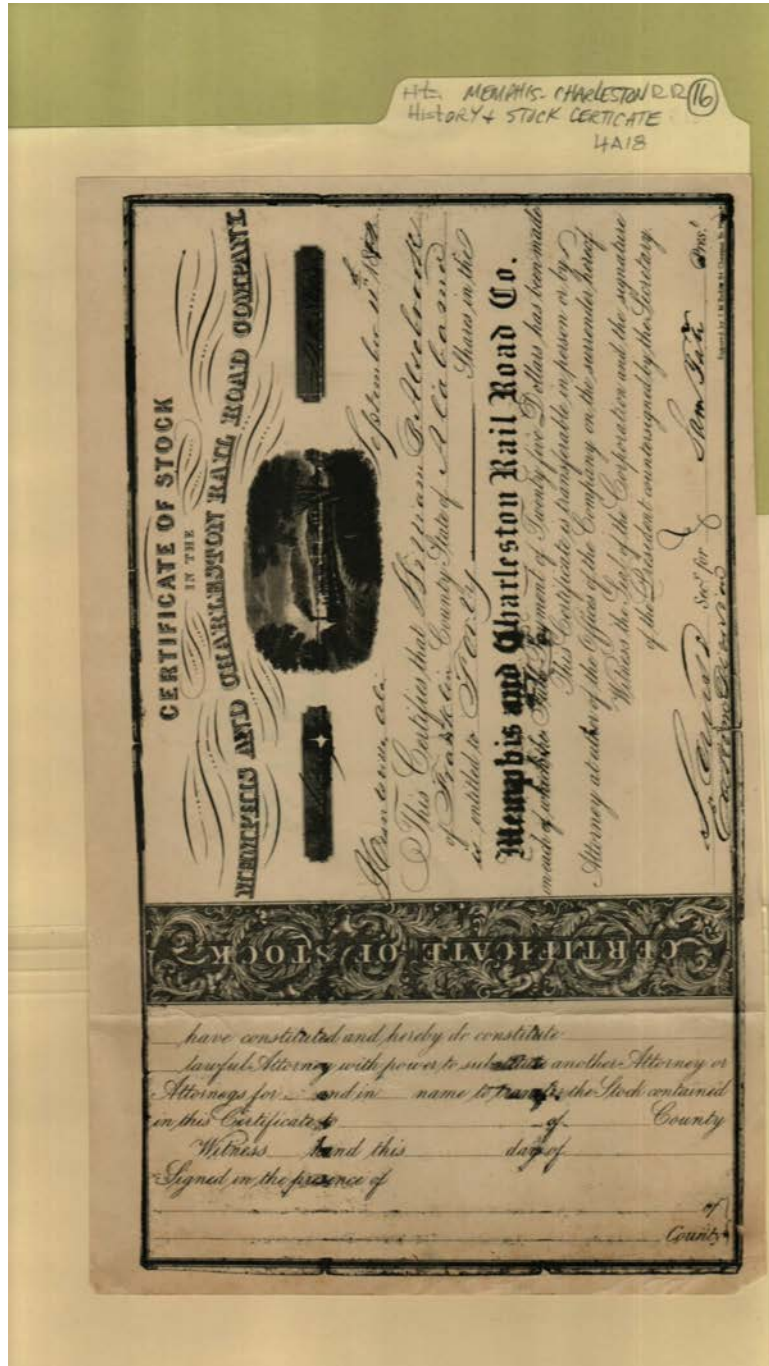 MEMPHIS-CHARLESTON RR 16
HistORY + STOCK CERTICATE
4A18
CERTIFICATE OF STOCK
IN THE
MEMPHIS AND CHARLESTON RAIL ROAD COMPANY
September 11th 18
This Certifies that William P.
of Franklin County State of Alabama
is entitled to Forty Shares in the
Memphis and Charleston Rail Road Co.
on each of which Payment of Twenty five Dollars has been made
This Certificate is transferable in person or by
Attorney at either of the Offices of the Company on the surrender hereof
Witness the Seal of the Corporation and the signature
of the President countersigned by the Secretary.
Secy for Sam Tate Pres.t
CERTIFICATE OF STOCK
have constituted and hereby do constitute
lawful Attorney with power to substitute another Attorney or
Attorneys for and in name to transfer the Stock contained
in this Certificate to of County
Witness hand this day of
Signed in the presence of
of
County